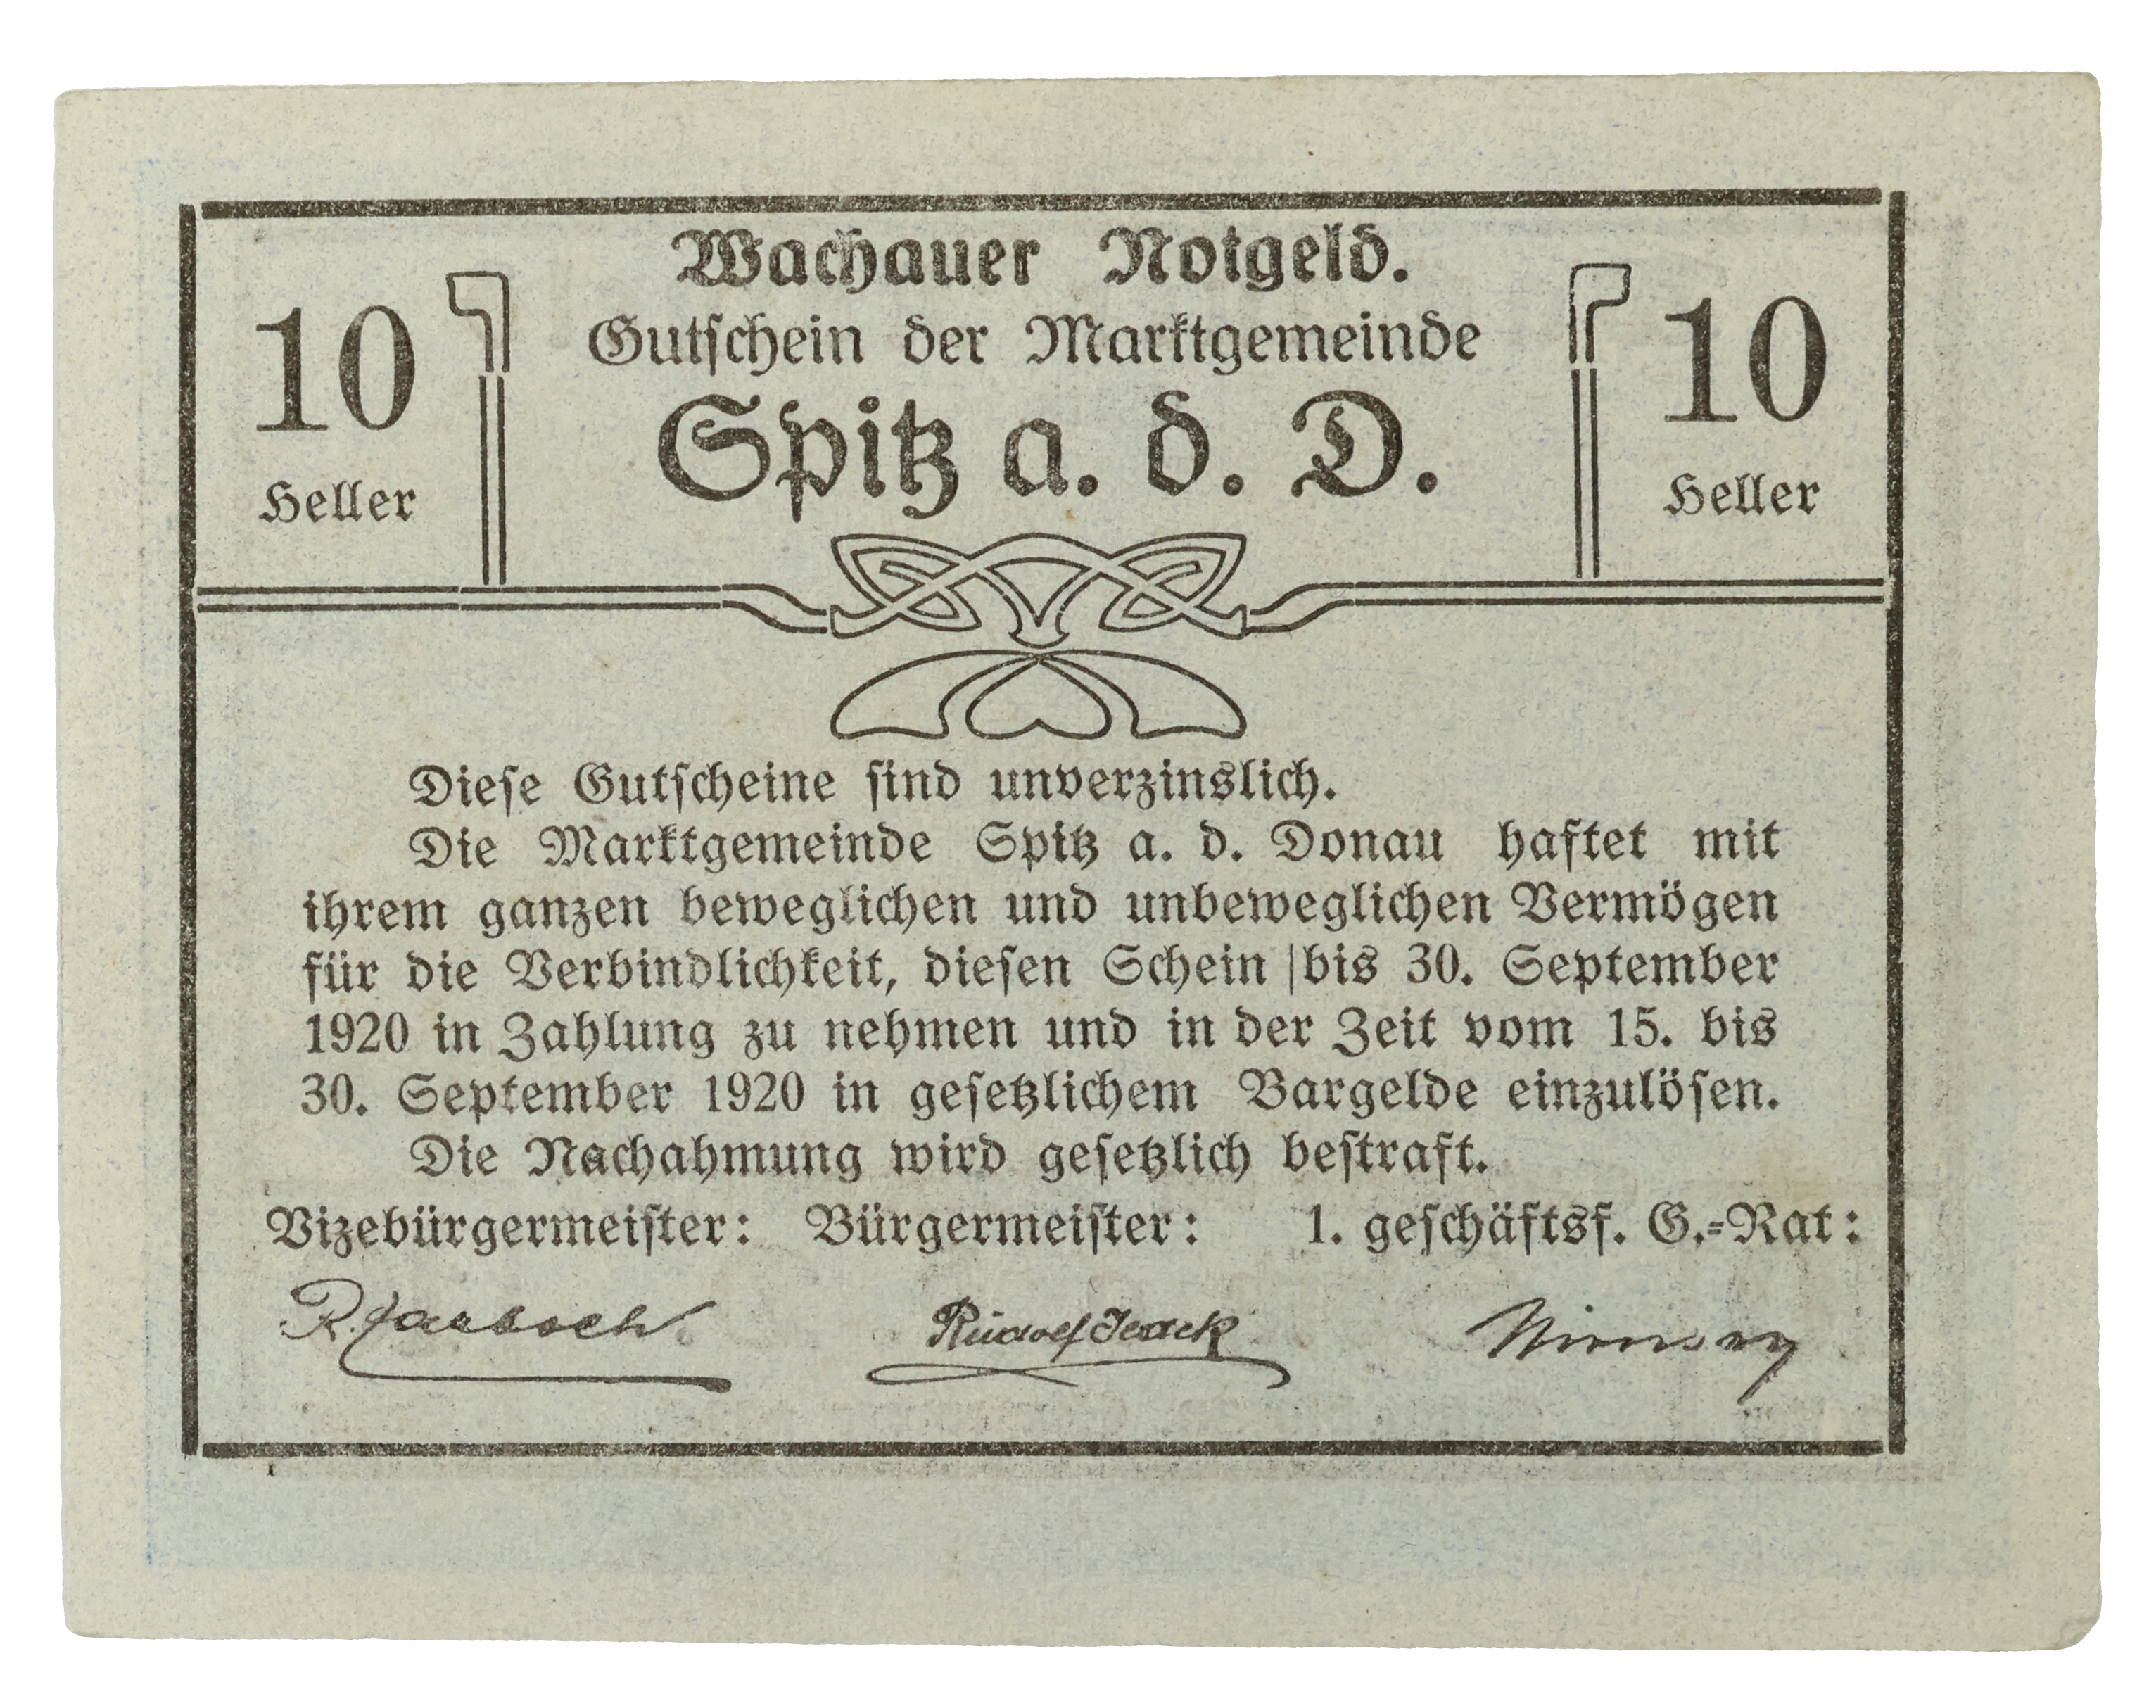 Wachauer Notgeld.
Gutschein der Marktgemeinde
Spitz a. d. D.
10
Heller
10
Heller
Diese Gutscheine sind unverzinslich.
Die Marktgemeinde Spitz a. d. Donau haftet mit
ihrem ganzen beweglichen und unbeweglichen Vermögen
für die Verbindlichkeit, diesen Schein bis 30. September
1920 in Zahlung zu nehmen und in der Zeit vom 15. bis
30. September 1920 in gesetzlichem Bargelde einzulösen.
Die Nachahmung wird gesetzlich bestraft.
Vizebürgermeister: Bürgermeister: 1. geschäftsf. G.-Rat:
Rudolf